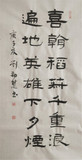 喜看稻菽千重浪
遍地英雄下夕烟